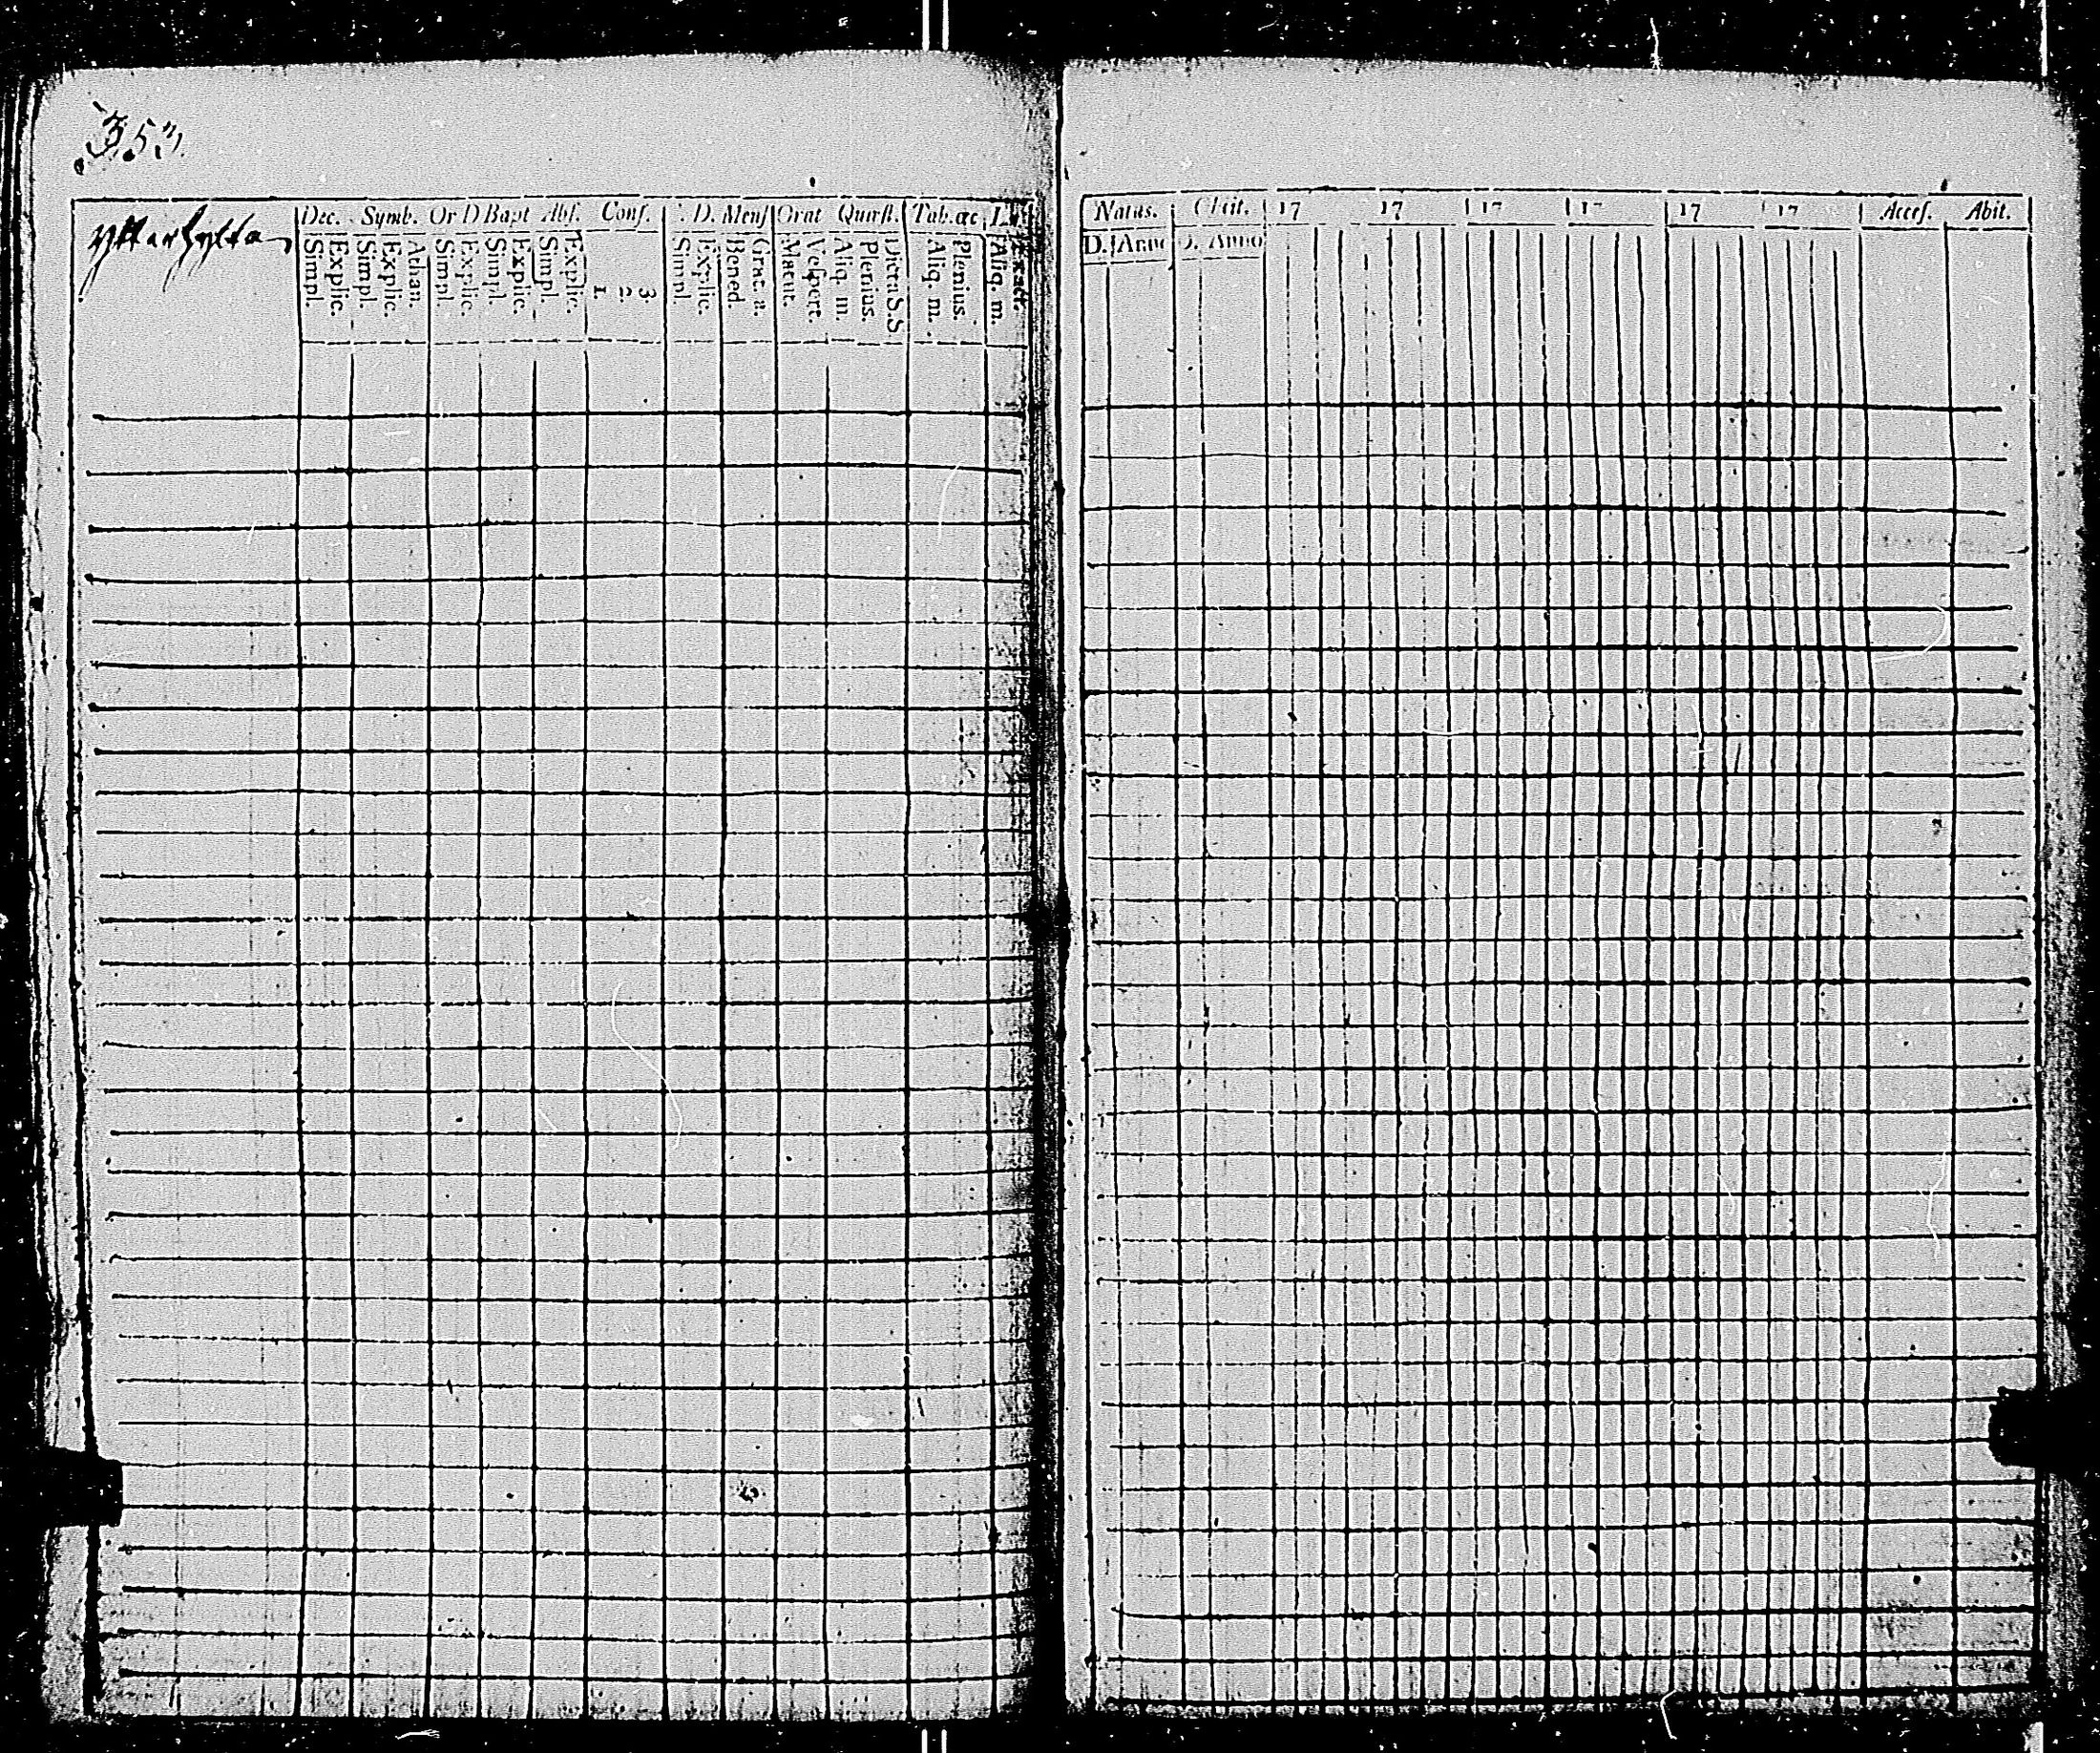 353
Ytterhylta
Dec. Symb. Or D Bapt Abs. Conf. D. Mens Orat Quæst. Tab. œc
Simpl. Explic. Simpl. Explic. Athan. Simpl. Explic. Simpl. Explic. Simpl. Explic. 1. 2. 3. Simpl. Explic. Bened. Grat. a. Matut. Vespert. Aliq. m. Plenius. Dicta S.S Aliq. m. Plenius. Aliq. m. Exact.
Natus. Obiit. 17 17 17 17 17 17 Acces. Abit.
D. Anno D. Anno